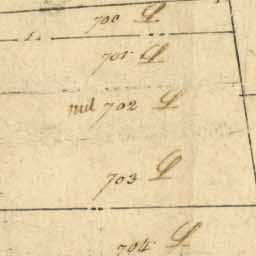 700 L
701 L
nul 702 L
703 L
704 L